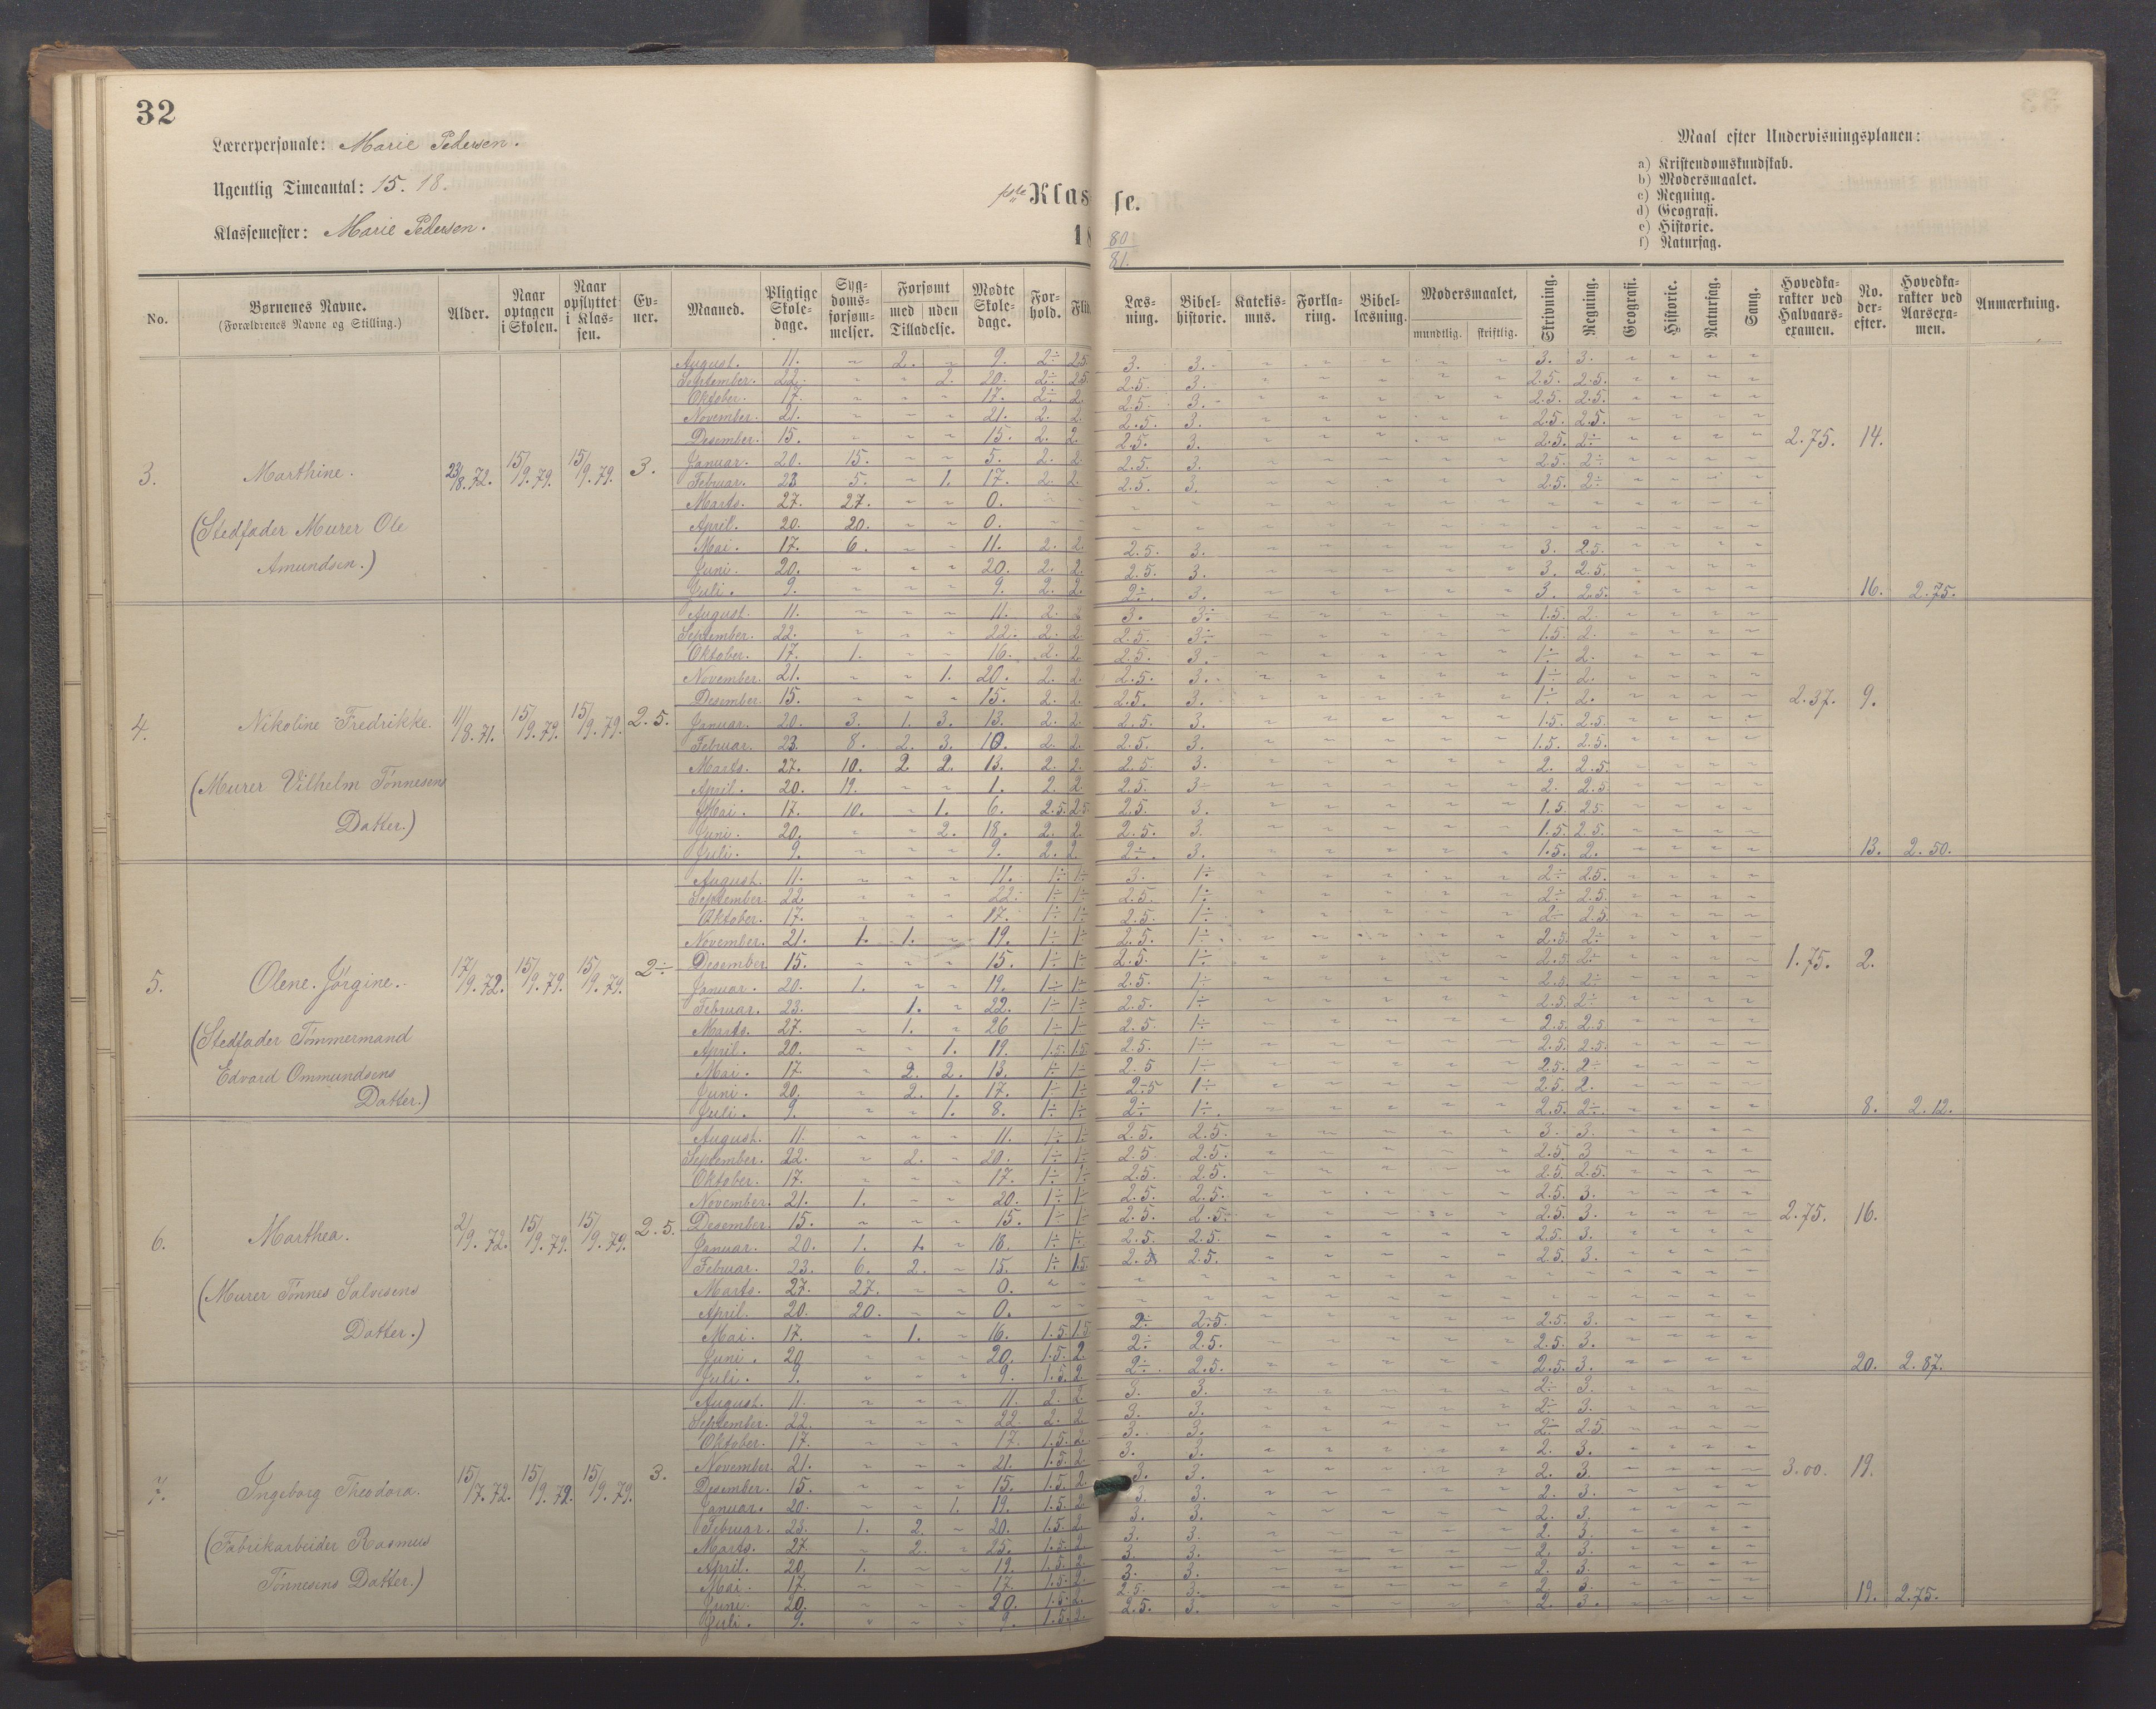 32
Lærerpersonale: Marie Pedersen.
Ugentlig Timeantal: 15. 18.
Klassemester: Marie Pedersen.
Klas
se.
18
80
81.
Maal efter Undervisningsplanen:
a) Kristendomskundskab.
b) Modersmaalet.
c) Regning.
d) Geografi.
e) Historie.
f) Natursag.
No. Børnenes Navne. (Forældrenes Navne og Stilling.) Alder. Naar optagen i Skolen. Naar opflyttet i Klassen. Evner. Maaned. Pligtige Skoledage. Sygdomsforsømmelser. Forsømt med uden Tilladelse. Mødte Skoledage. Forhold. Flid. Læsning. Bibelhistorie. Katekismus. Forklaring. Bibellæsning. Modersmaalet, mundtlig. skriftlig. Skrivning. Regning. Geografi. Historie. Natursag. Sang. Hovedkarakter ved Halvaarsexamen. No. derefter. Hovedkarakter ved Aarsexamen. Anmærkning.
August. 11. ~ 2. ~ 9. 2÷ 2.5 3. 3. ~ ~ ~ ~ ~ 3. 3. ~ ~ ~ ~
September. 22. ~ ~ 2. 20. 2÷ 2.5 2.5. 3. ~ ~ ~ ~ ~ 2.5. 2.5. ~ ~ ~ ~
Oktober. 17. ~ ~ ~ 17. 2÷ 2. 2.5. 3. ~ ~ ~ ~ ~ 2.5. 2.5. ~ ~ ~ ~
November. 21. ~ ~ ~ 21. 2. 2. 2.5. 3. ~ ~ ~ ~ ~ 2.5. 2.5. ~ ~ ~ ~
Desember. 15. ~ ~ ~ 15. 2. 2. 2.5. 3. ~ ~ ~ ~ ~ 2.5. 2÷ ~ ~ ~ ~ 2.75. 14.
3. Marthine. 23/8.72. 15/9.79. 15/9.79. 3. Januar. 20. 15. ~ ~ 5. 2. 2. 2.5. 3. ~ ~ ~ ~ ~ 2.5. 2÷ ~ ~ ~ ~
Februar. 23 5. ~ 1. 17. 2. 2. 2.5. 3. ~ ~ ~ ~ ~ 2.5. 2÷ ~ ~ ~ ~
Marts. 27. 27. ~ ~ 0. ~ ~ ~ ~ ~ ~ ~ ~ ~ ~ ~ ~ ~ ~ ~
(Stedfader Murer Ole April. 20. 20. ~ ~ 0. ~ ~ ~ ~ ~ ~ ~ ~ ~ ~ ~ ~ ~ ~ ~
Mai. 17. 6. ~ ~ 11. 2. 2. 2.5. 3. ~ ~ ~ ~ ~ 3. 2.5. ~ ~ ~ ~
Amundsen.) Juni. 20. ~ ~ ~ 20. 2. 2. 2.5. 3. ~ ~ ~ ~ ~ 3. 2.5. ~ ~ ~ ~
Juli. 9. ~ ~ ~ 9. 2. 2. 2÷. 3. ~ ~ ~ ~ ~ 3. 2.5. ~ ~ ~ ~ 16. 2.75.
August. 11. ~ ~ ~ 11. 2. 2 3. 3÷ ~ ~ ~ ~ ~ 1.5. 2. ~ ~ ~ ~
September. 22. ~ ~ ~ 22. 2. 2. 2.5. 3÷ ~ ~ ~ ~ ~ 1.5. 2. ~ ~ ~ ~
Oktober. 17. 1. ~ ~ 16. 2. 2. 2.5. 3. ~ ~ ~ ~ ~ 1÷ 2. ~ ~ ~ ~
November. 21. ~ ~ 1. 20. 2. 2. 2.5. 3. ~ ~ ~ ~ ~ 1÷ 2. ~ ~ ~ ~
Desember. 15. ~ ~ ~ 15. 2. 2. 2.5. 3. ~ ~ ~ ~ ~ 1÷ 2. ~ ~ ~ ~ 2.37. 9.
4. Nikoline Fredrikke. 11/8.71. 15/9.79. 15/9.79. 2.5. Januar. 20. 3. 1. 3. 13. 2. 2. 2.5. 3. ~ ~ ~ ~ ~ 1.5. 2.5 ~ ~ ~ ~
Februar. 23. 8. 2. 3. 10. 2. 2. 2.5. 3. ~ ~ ~ ~ ~ 1.5. 2.5. ~ ~ ~ ~
Marts. 27. 10. 2 2. 13. 2. 2. 2.5 3. ~ ~ ~ ~ ~ 2. 2.5. ~ ~ ~ ~
(Murer Vilhelm Tönnesens April. 20. 19. ~ ~ 1. 2. 2. 2.5. 3. ~ ~ ~ ~ ~ 2. 2.5 ~ ~ ~ ~
Mai. 17. 10. ~ 1. 6. 2.5. 2.5 2.5. 3. ~ ~ ~ ~ ~ 1.5. 2.5. ~ ~ ~ ~
Datter.) Juni. 20. ~ ~ 2. 18. 2. 2. 2.5. 3. ~ ~ ~ ~ ~ 1.5. 2.5. ~ ~ ~ ~
Juli. 9. ~ ~ ~ 9. 2. 2. 2÷. 3. ~ ~ ~ ~ ~ 1.5. 2. ~ ~ ~ ~ 13. 2.50.
August. 11. ~ ~ ~ 11. 1÷ 1÷ 3. 1÷ ~ ~ ~ ~ ~ 2÷ 2.5. ~ ~ ~ ~
September. 22. ~ ~ ~ 22. 1÷ 1÷ 2.5. 1÷ ~ ~ ~ ~ ~ 2÷ 2.5. ~ ~ ~ ~
Oktober. 17. ~ ~ ~ 17. 1÷ 1÷ 2.5. 1÷ ~ ~ ~ ~ ~ 2÷ 2.5. ~ ~ ~ ~
November. 21. 1. 1. ~ 19. 1÷ 1÷ 2.5. 1÷ ~ ~ ~ ~ ~ 2.5. 2÷ ~ ~ ~ ~
Desember. 15. ~ ~ ~ 15. 1÷ 1÷ 2.5. 1÷ ~ ~ ~ ~ ~ 2.5 2÷ ~ ~ ~ ~ 1.75. 2.
5. Olene. Jörgine. 17/9.72. 15/9.79. 15/9.79. 2÷ Januar. 20. 1. ~ ~ 19. 1÷ 1÷ 2.5. 1÷ ~ ~ ~ ~ ~ 2.5. 2÷ ~ ~ ~ ~
Februar. 23. 1. ~ 22. 1÷ 1÷ 2.5. 1÷ ~ ~ ~ ~ ~ 2.5. 2÷ ~ ~ ~ ~
Marts. 27. ~ 1. ~ 26 1÷ 1÷ 2.5 1÷ ~ ~ ~ ~ ~ 2.5. 2.5. ~ ~ ~ ~
(Stedfader Tömmermand April. 20. ~ ~ 1. 19. 1.5. 1.5 2.5. 1÷ ~ ~ ~ ~ ~ 2.5. 2.5. ~ ~ ~ ~
Edvard Ommundsens Mai. 17. ~ 2. 2. 13. 1÷ 1÷ 2.5 1÷ ~ ~ ~ ~ ~ 2.5. 2÷ ~ ~ ~ ~
Juni. 20. ~ 2. 1. 17. 1÷ 1÷ 2.5 1÷ ~ ~ ~ ~ ~ 2.5 2. ~ ~ ~ ~
Datter.) Juli. 9. ~ ~ 1. 8. 1÷ 1÷ 2÷ 1÷. ~ ~ ~ ~ ~ 2.5. 2÷. ~ ~ ~ ~ 8. 2.12.
August. 11. ~ ~ ~ 11. 1÷ 1÷ 2.5. 2.5. ~ ~ ~ ~ ~ 3. 3. ~ ~ ~ ~
September. 22. ~ 2. ~ 20. 1÷ 1÷ 2.5 2.5. ~ ~ ~ ~ ~ 2.5 3 ~ ~ ~ ~
Oktober. 17. ~ ~ ~ 17. 1÷ 1÷ 2.5. 2.5. ~ ~ ~ ~ ~ 2.5. 2.5. ~ ~ ~ ~
November. 21. 1. ~ ~ 20. 1÷ 1÷ 2.5. 2.5. ~ ~ ~ ~ ~ 2.5. 3. ~ ~ ~ ~
Desember. 15. ~ ~ ~ 15. 1÷ 1÷ 2.5. 2.5. ~ ~ ~ ~ ~ 2.5. 3. ~ ~ ~ ~ 2.75. 16.
6. Marthea. 2/9.72. 15/9.79. 15/9.79. 2.5. Januar. 20. 1. 1. ~ 18. 1÷ 1÷ 2.5. 2.5. ~ ~ ~ ~ ~ 2.5. 3. ~ ~ ~ ~
Februar. 23. 6. 2. ~ 15. 1÷ 1.5. 2.5 2.5. ~ ~ ~ ~ ~ 2.5 3. ~ ~ ~ ~
(Murer Tönnes Salvesens Marts. 27. 27. ~ ~ 0. ~ ~ ~ ~ ~ ~ ~ ~ ~ ~ ~ ~ ~ ~ ~
April. 20. 20. ~ ~ 0. ~ ~ ~ ~ ~ ~ ~ ~ ~ ~ ~ ~ ~ ~ ~
Datter.) Mai. 17. ~ 1. ~ 16. 1.5. 1.5 2÷ 2.5. ~ ~ ~ ~ ~ 2.5. 3. ~ ~ ~ ~
Juni. 20 ~ ~ ~ 20. 1.5. 2. 2÷ 2.5. ~ ~ ~ ~ ~ 2.5. 3. ~ ~ ~ ~
Juli. 9. ~ ~ ~ 9. 1.5. 2. 2÷. 2.5. ~ ~ ~ ~ ~ 2.5. 3. ~ ~ ~ ~ 20. 2.87.
August. 11. ~ ~ ~ 11. 2. 2. 3. 3. ~ ~ ~ ~ ~ 2÷ 3. ~ ~ ~ ~
September. 22. ~ ~ ~ 22. 2. 2. 3. 3. ~ ~ ~ ~ ~ 2÷ 3. ~ ~ ~ ~
Oktober. 17. ~ ~ ~ 17. 1.5. 2. 3. 3. ~ ~ ~ ~ ~ 2÷ 2.5 ~ ~ ~ ~
November 21. ~ ~ ~ 21. 1.5. 2. 3. 3. ~ ~ ~ ~ ~ 2. 3. ~ ~ ~ ~
Desember. 15. ~ ~ ~ 15. 1.5. 2. 3. 3. ~ ~ ~ ~ ~ 2. 3. ~ ~ ~ ~ 3.00. 19.
7. Ingeborg Theodora. 15/7.72. 15/9.79. 15/9.79. 3. Januar. 20. ~ ~ 1. 19. 1.5. 2. 3. 3. ~ ~ ~ ~ ~ 2. 3. ~ ~ ~ ~
Februar. 23. 1. 2. ~ 20. 1.5. 2. 3. 3. ~ ~ ~ ~ ~ 2. 3. ~ ~ ~ ~
(Fabrikarbeider Rasmus Marts. 27 ~ 2. ~ 25. 1.5. 2 3. 3. ~ ~ ~ ~ ~ 2. 3. ~ ~ ~ ~
April. 20 1. ~ ~ 19. 1.5. 2. 3. 3. ~ ~ ~ ~ ~ 2. 3. ~ ~ ~ ~
Tönnesens Datter.) Mai. 17. ~ ~ ~ 17. 1.5. 2. 3. 3. ~ ~ ~ ~ ~ 2. 3. ~ ~ ~ ~
Juni. 20. ~ ~ ~ 20. 1.5. 2. 2.5. 3. ~ ~ ~ ~ ~ 2. 3. ~ ~ ~ ~
Juli. 9. ~ ~ ~ 9. 1.5. 2. 2.5. 3. ~ ~ ~ ~ ~ 2. 3. ~ ~ ~ ~ 19. 2.75.